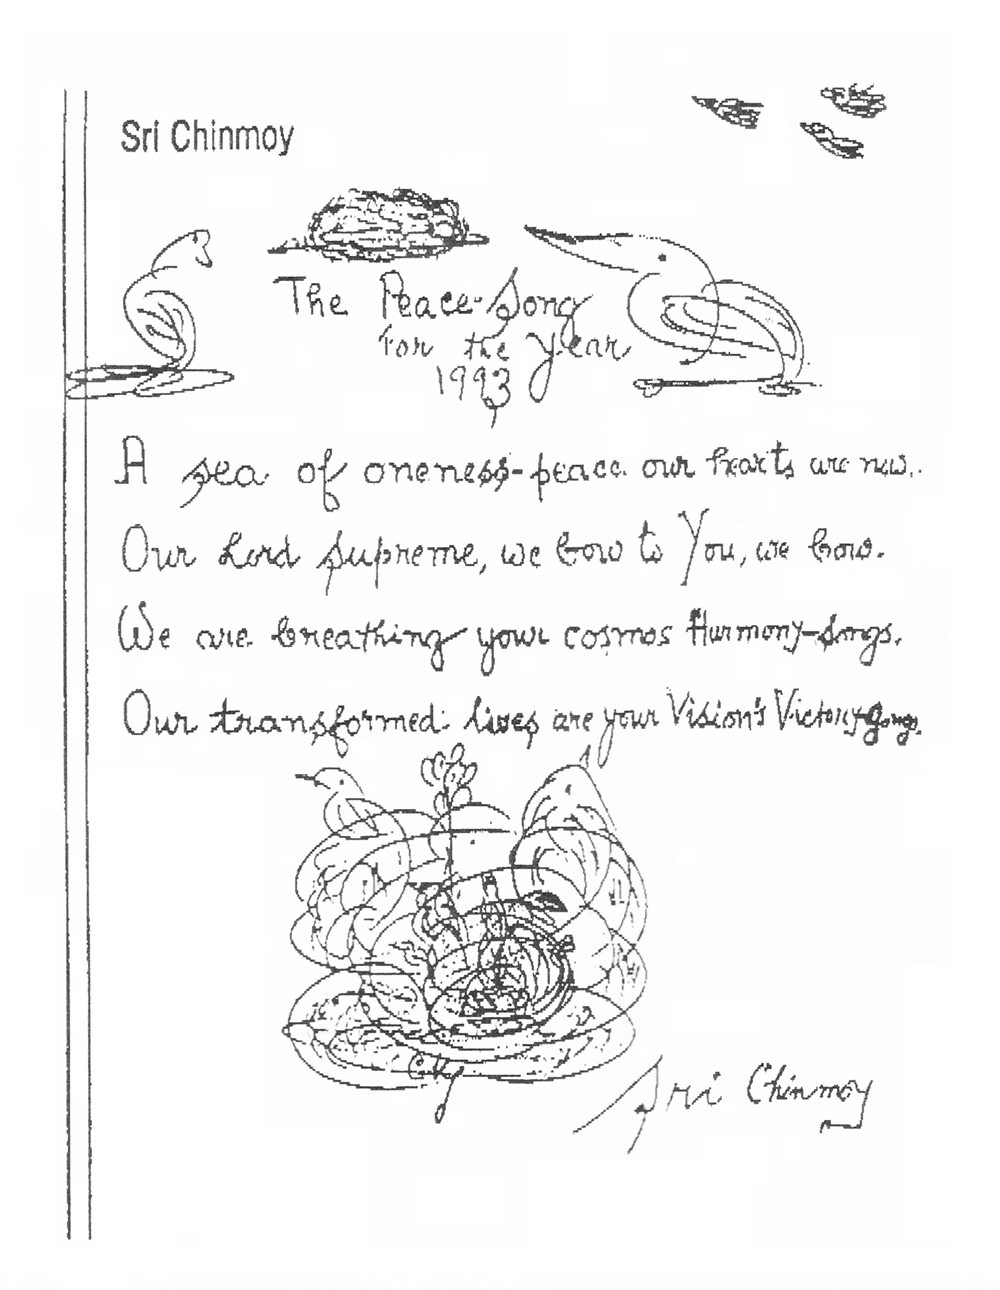 Sri Chinmoy
The Peace-Song
For the Year
1993
A sea of oneness-peace our hearts are now.
Our Lord Supreme, we bow to You, we bow.
We are breathing your cosmos Harmony-Songs.
Our transformed lives are your Vision's Victory-Gongs.
CKG
Sri Chinmoy